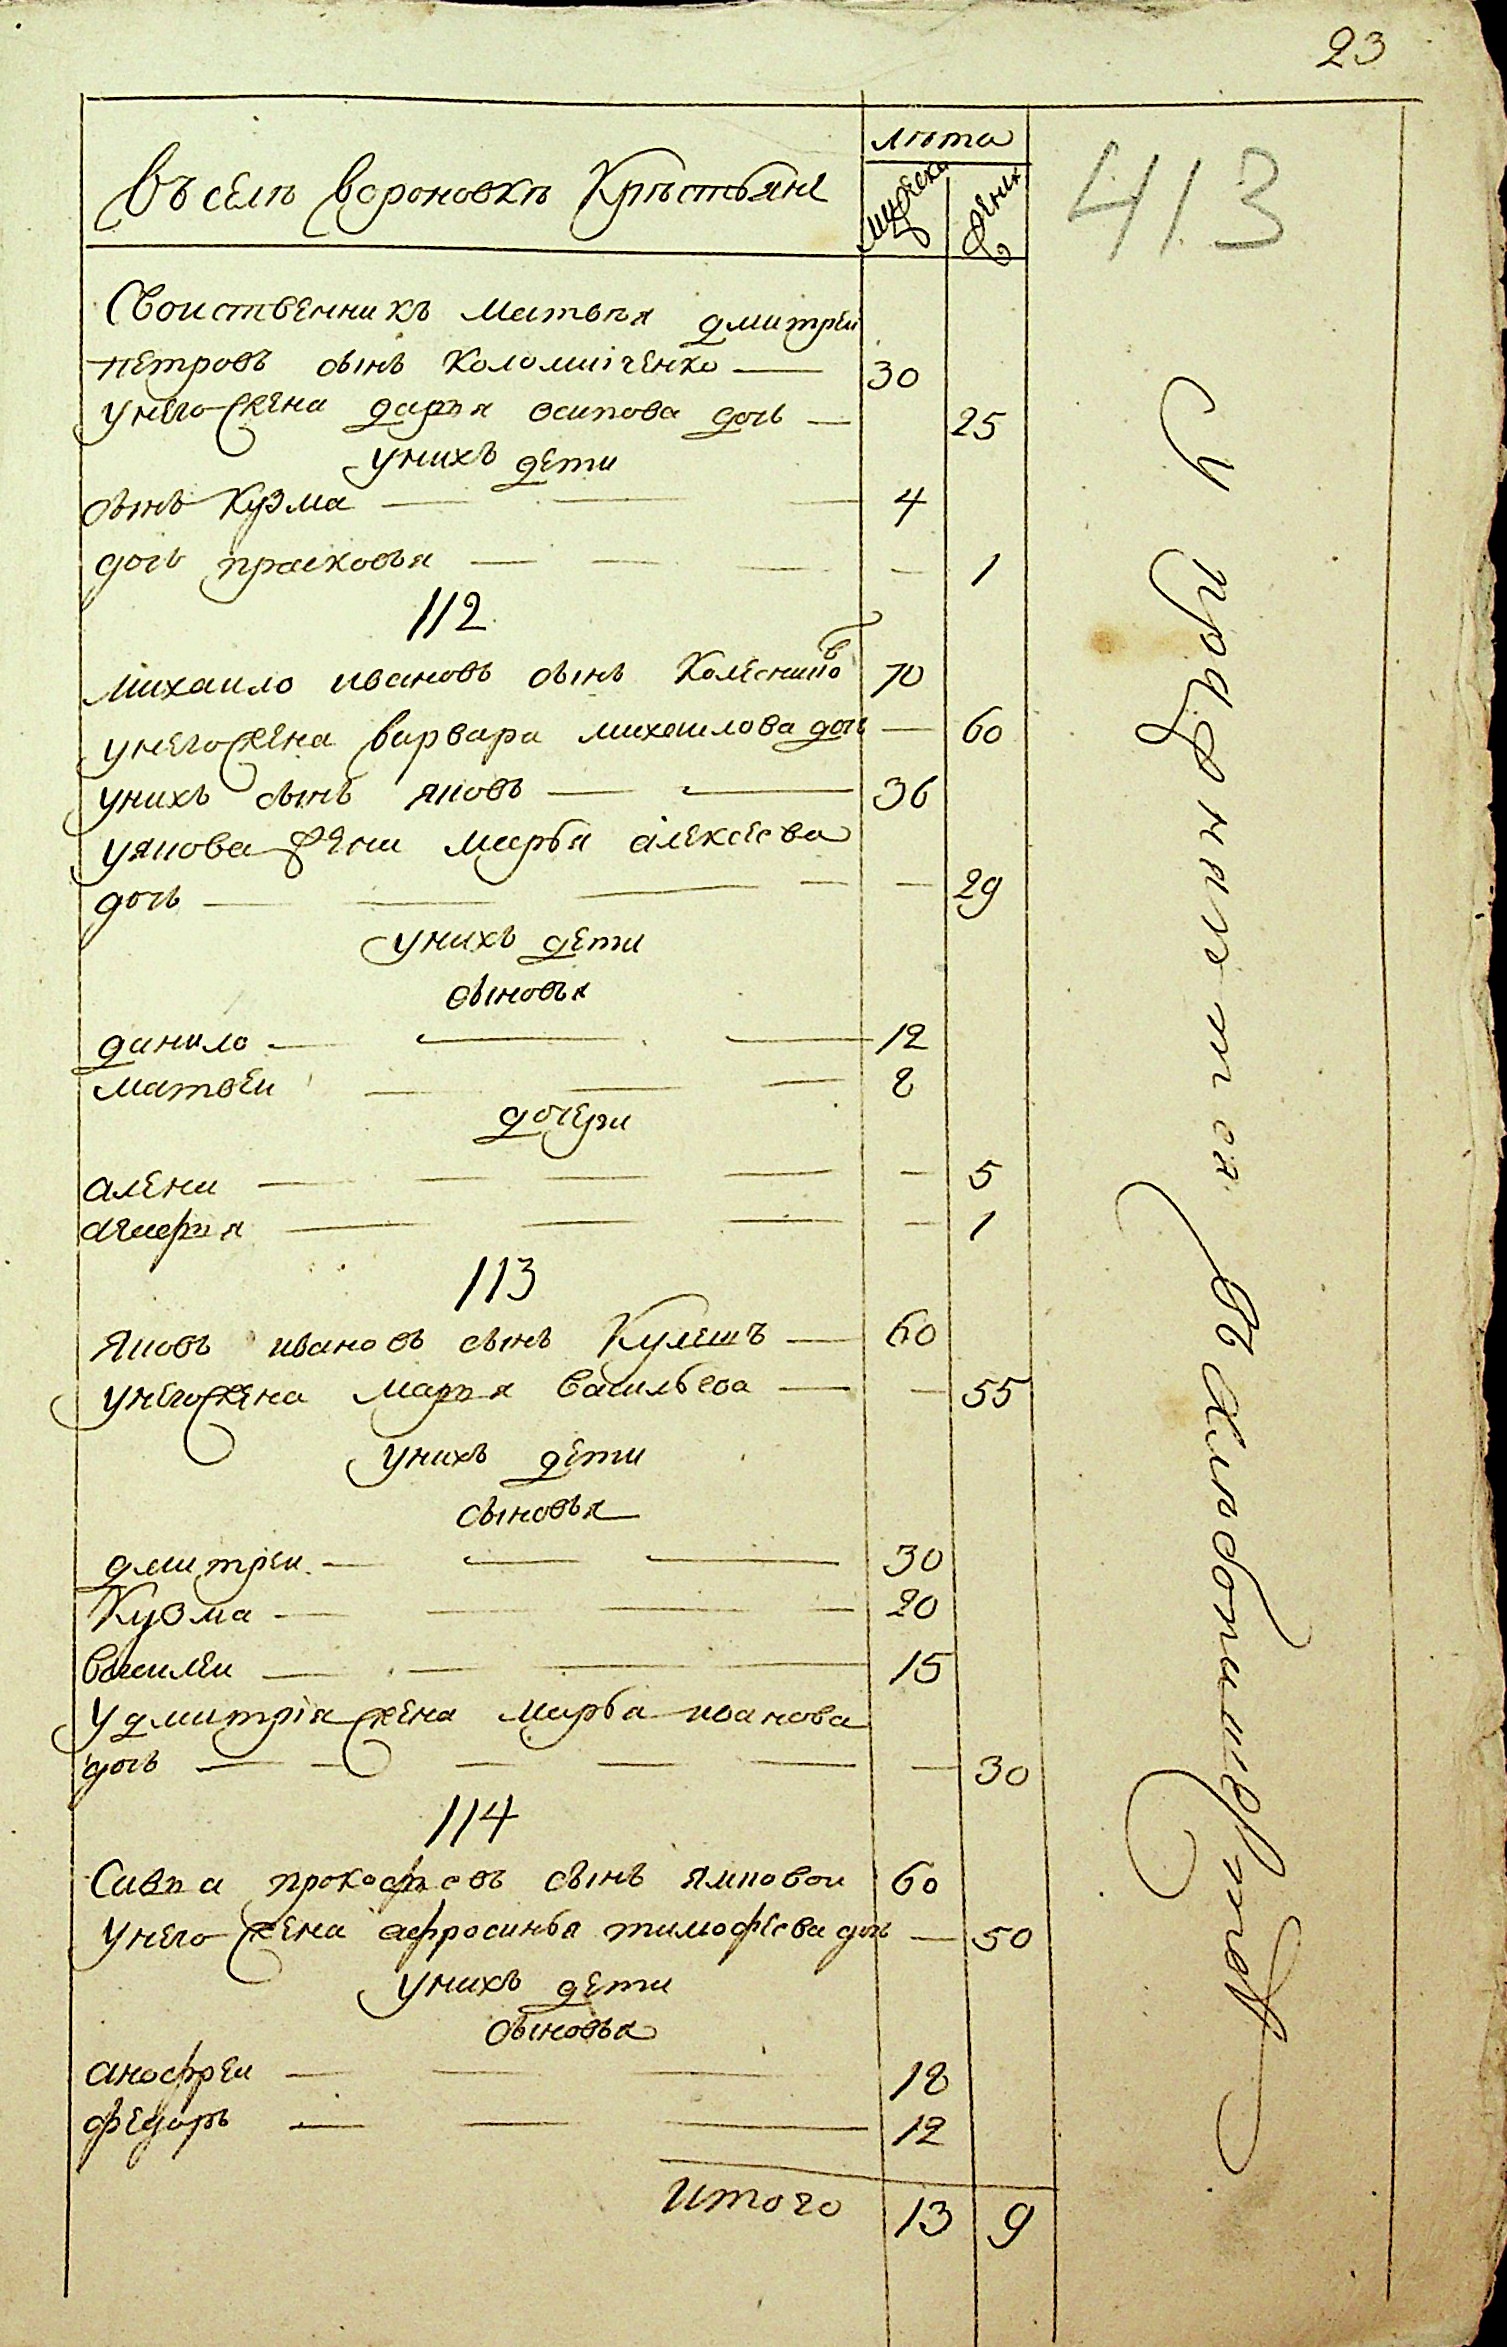 23
413
лѣта
Въ селѣ Вороновкѣ Крѣстьяне
мужеска
женск
Своиственникъ Матвѣя дмитреи
петровъ сынъ Коломиіченко — 30
унего жена дарья осипова дочь — 25
унихъ дети
сынъ Кузма — 4
дочь прасковья — 1
112
михаило ивановъ сынъ Колесников 70
унего жена варвара михаилова дочь — 60
унихъ сынъ яковъ — 36
уякова жена марья алексеева
дочь — 29
унихъ дети
сыновья
данило — 12
матвеи — 8
дочери
алена — 5
агафья — 1
113
яковъ ивановъ сынъ Кулешъ — 60
унего жена марья васильева — 55
унихъ дети
сыновья
дмитреи — 30
Кузма — 20
василеи — 15
удмитрія жена марья иванова
дочь — 30
114
Савка прокофьевъ сынъ ямковои 60
унего жена афросинья тимофѣева дочь — 50
унихъ дети
сыновья
анофреи — 18
федоръ — 12
итого 13 9
У пражняется въ хлебопашестве